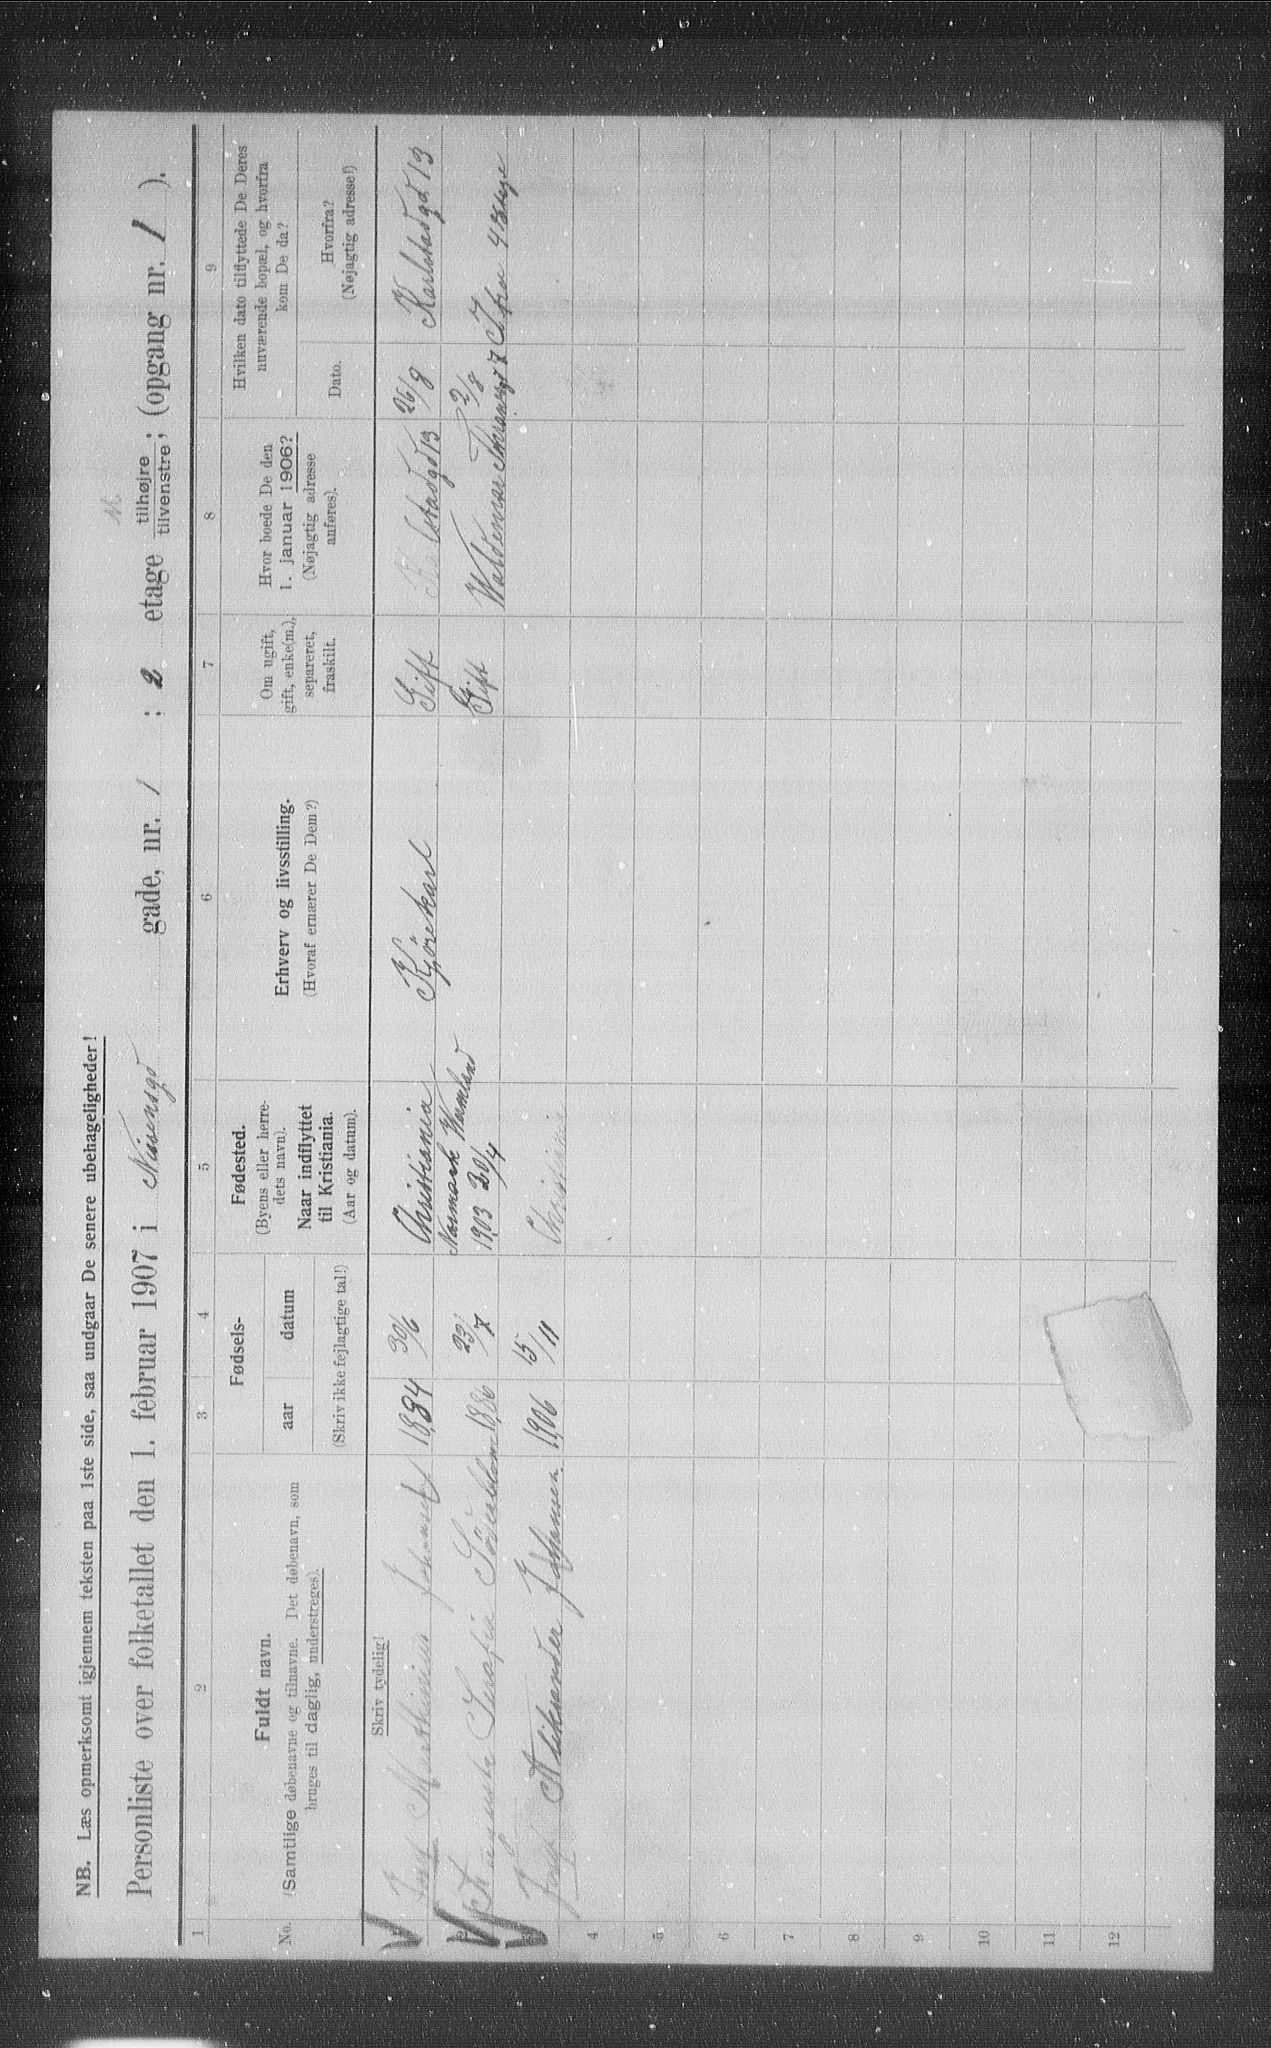 NB. Læs opmerksomt igjennem teksten paa 1ste side, saa undgaar De senere ubehageligheder!
Personliste over folketallet den 1. februar 1907 i Nissensgd gade, nr. 1 : 2 etage tilhøjre / tilvenstre; (opgang nr. 1 ).
1 2 3 4 5 6 7 8 9
No.
Fuldt navn.
(Samtlige døbenavne og tilnavne. Det døbenavn, som
bruges til daglig, understreges).
Fødsels-
aar datum
(Skriv ikke fejlagtige tal!)
Fødested.
(Byens eller herre-
dets navn).
Naar indflyttet
til Kristiania.
(Aar og datum).
Erhverv og livsstilling.
(Hvoraf ernærer De Dem?)
Om ugift,
gift, enke(m.),
separeret,
fraskilt.
Hvor boede De den
1. januar 1906?
(Nøjagtig adresse
anføres).
Hvilken dato tilflyttede De Deres
nuværende bopæl, og hvorfra
kom De da?
Dato.
Hvorfra?
(Nøjagtig adresse!)
Skriv tydelig!
Mathinius Johansen 1884 30/6 Christiania Kjørekarl Gift Karlstadgd 13 26/8 Karlstadgd 13
Serafia Söderblom 1886 23/7 Wermland 1903 20/4 Gift Waldemar Thranesgd 7 2/8
Aleksander Johansen. 1906 15/11 Christiania
4
5
6
7
8
9
10
11
12